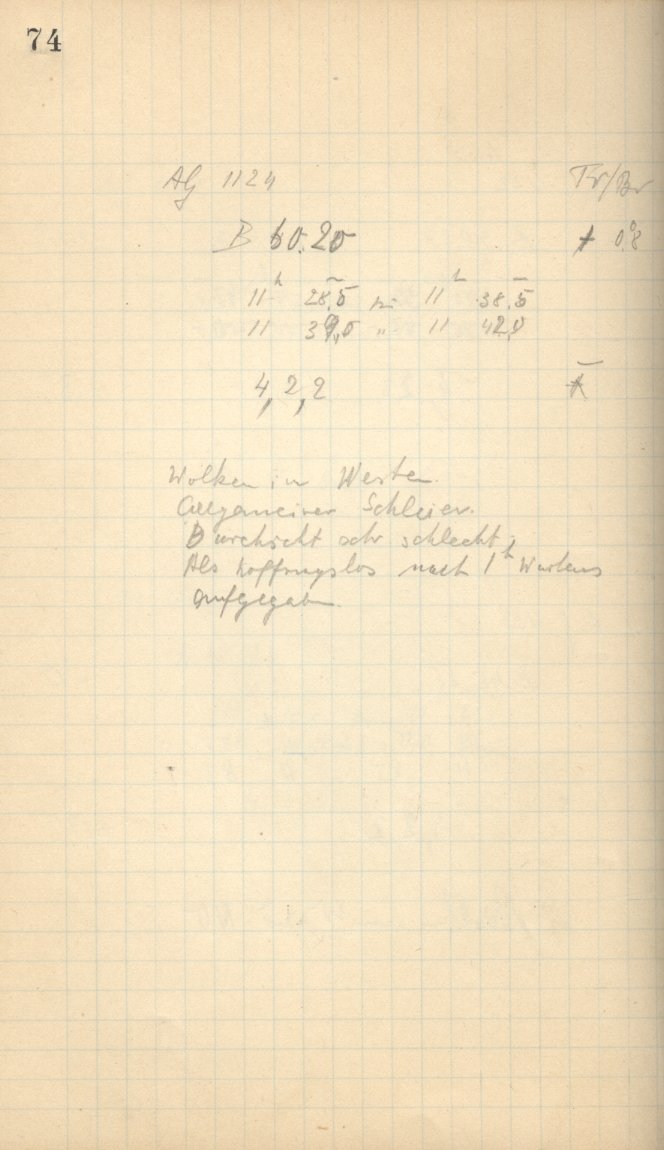 74
AG 1124 Tr/Br
B 60.20 + 0.8
11h 28,5 bis 11h 38,5
11 39,0 " 11 42,0
4, 2, 2
Wolken im Westen.
Allgemeiner Schleier.
Durchsicht sehr schlecht.
Als hoffnungslos nach 1h Wartens
aufgegeben.